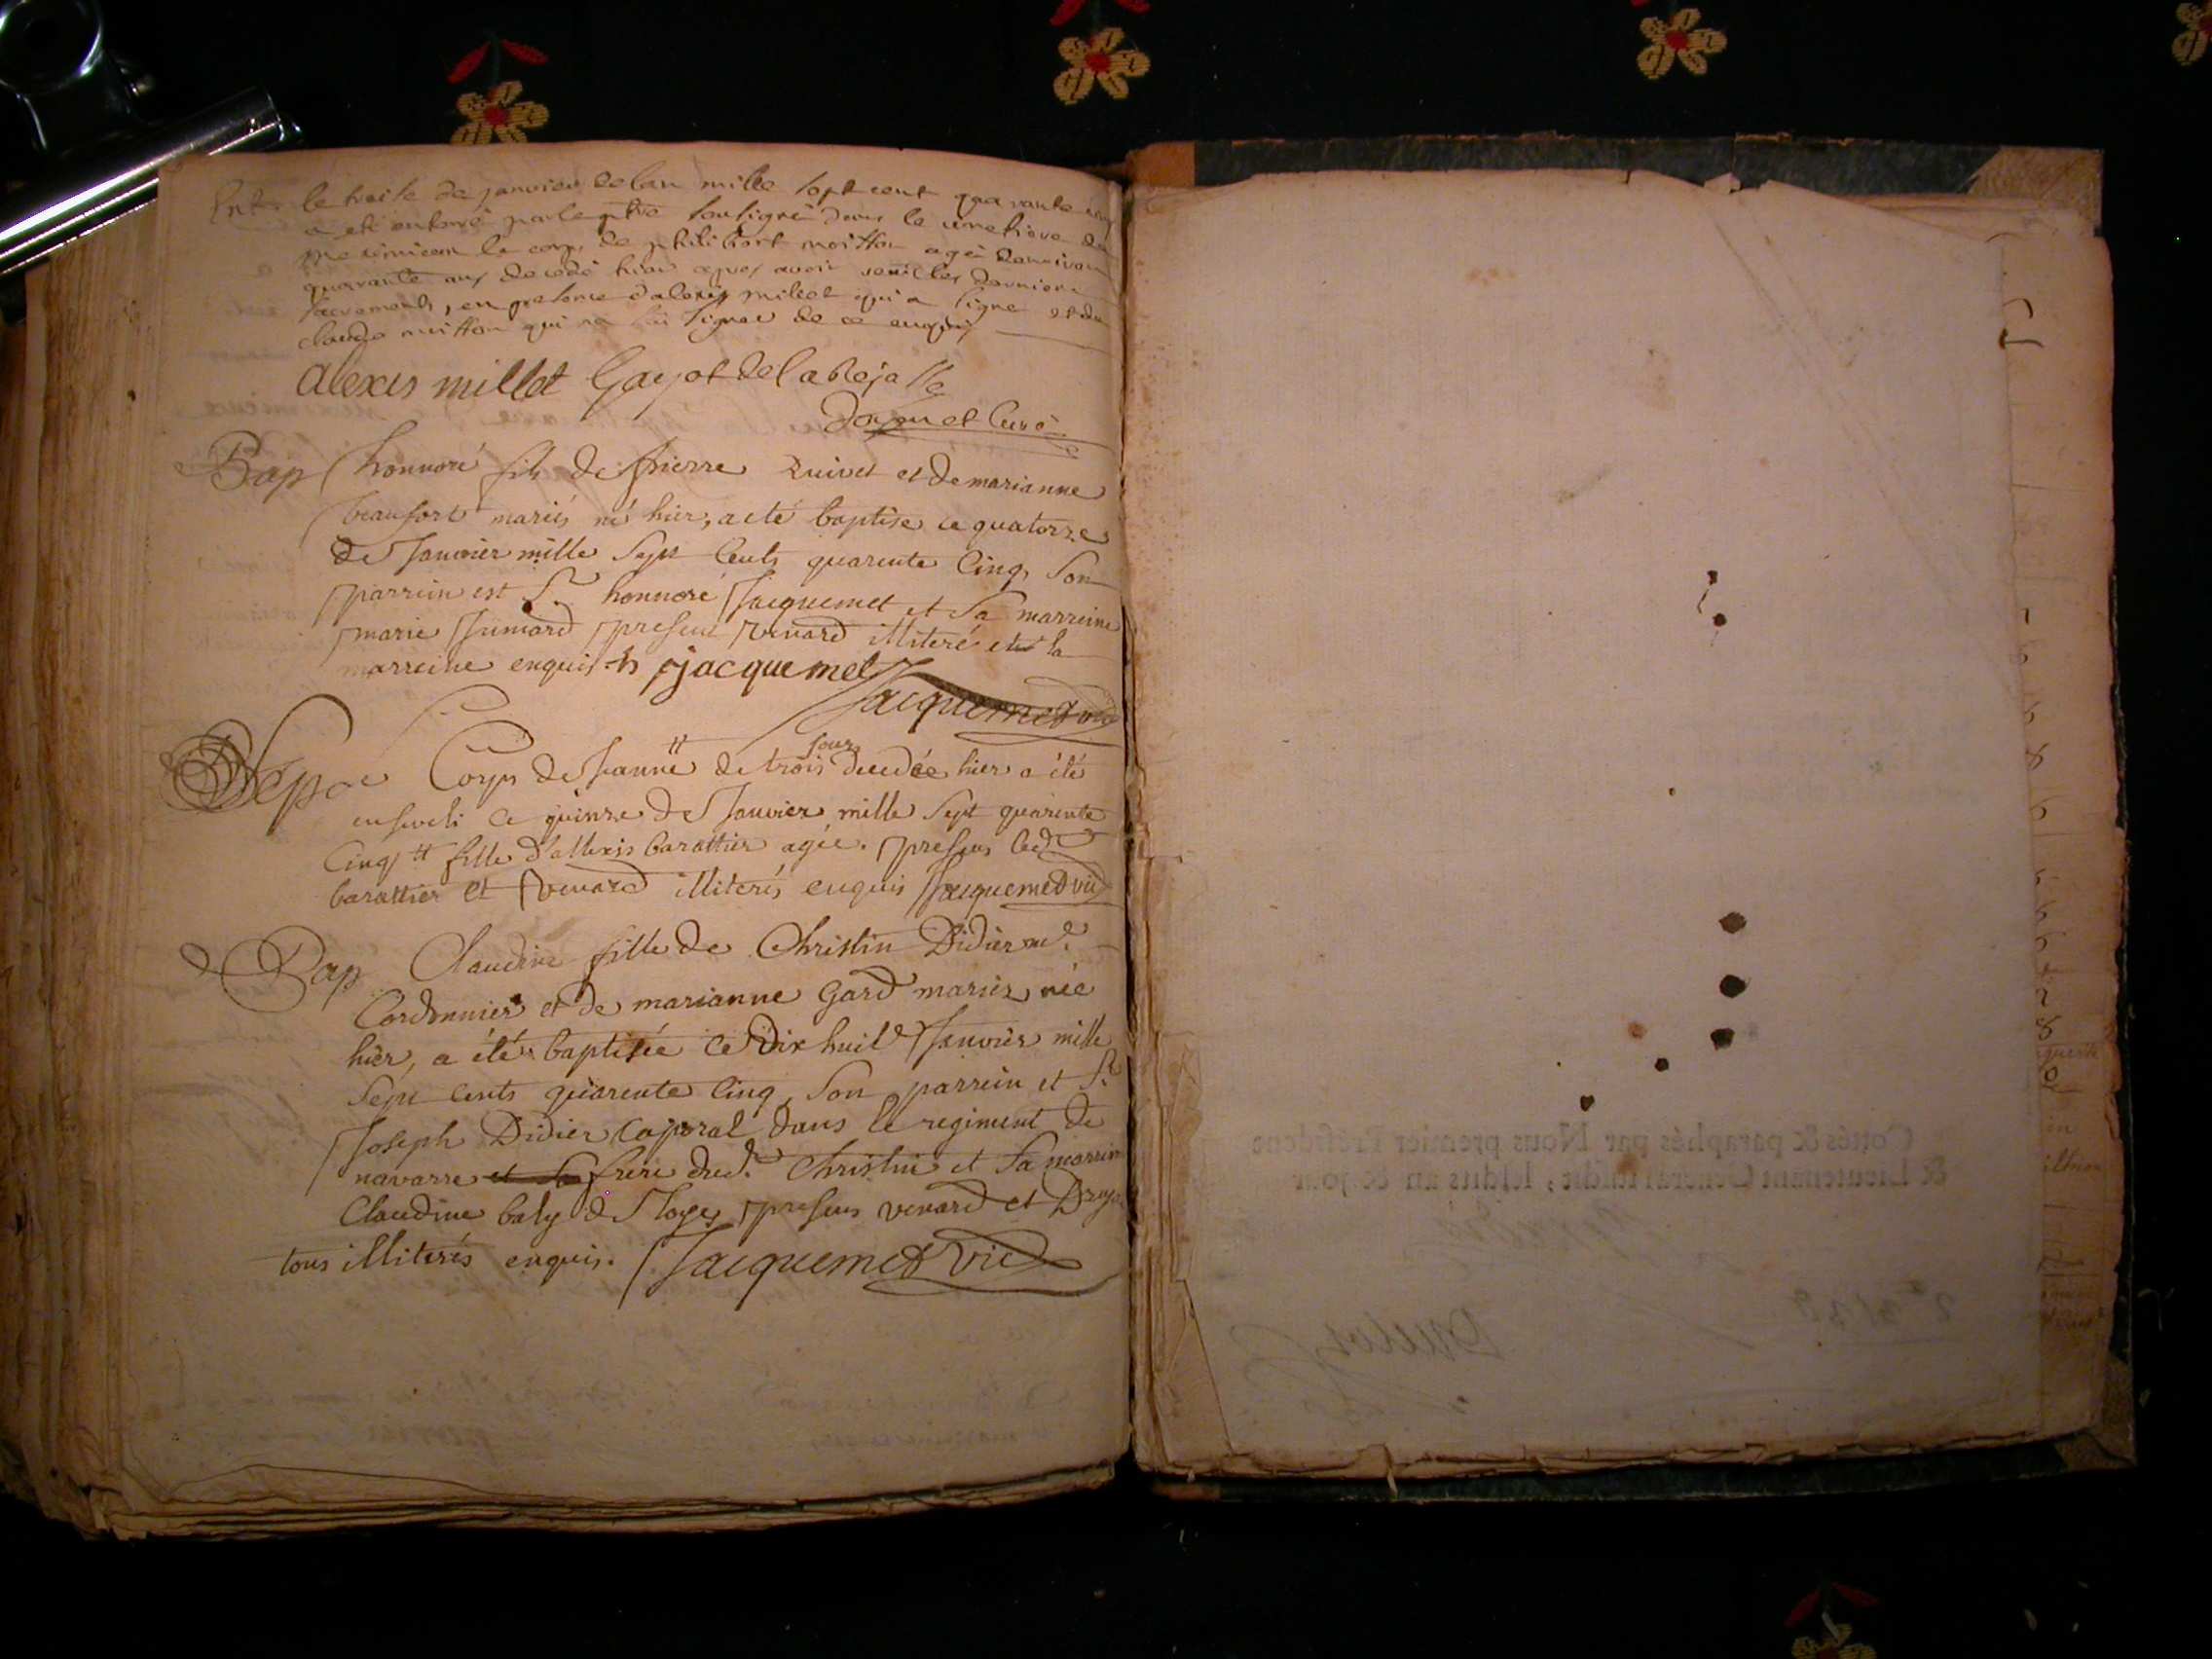 Ent. le treise de janvier de lan mille sept cent quarante cinq
a eté enterré par le ptre soussigné dans le cimetiere de
le corps de philibert moitton agé denviron
quarante ans decedé hier apres avoir les derniers
sacrements, en presence d'alexis millet qui a signé et de
claude moitton qui na sçu signer de ce enquis
alexis millet Gayot de la
curé
Bap honnoré fils de pierre Quivet et de marianne
beaufort mariés né hier, a eté baptise ce quatorze
de Janvier mille Sept Cents quarente Cinq, Son
parrein est Sr honnoré Jacquemet et Sa marreine
marie Jumard presens venard illiteré et la
marreine enquis h jacquemet
Jacquemet vic
Sep Corps de Jeanne tt de trois jours decedée hier a été
enseveli ce quinze de Janvier mille Sept quarente
Cinq tt fille d'allexis barattier agée. presens led
barattier et venard illiterés enquis Jacquemet vic
Bap Claudine fille de Christin Didier me
Cordonnier et de marianne Gard mariés née
hier, a été baptisée ce Dix huit Janvier mille
Sept Cents quarente Cinq, Son parrein et Sr
Joseph Didier Caporal dans le regiment de
navarre et Sa frere dud. Christin et Sa marreine
Claudine baly de Loyes, presens venard et
tous illiterés enquis. Jacquemet vic
Cottés & paraphés par Nous premier President
& Lieutenant General susdit, lesdits an & jour